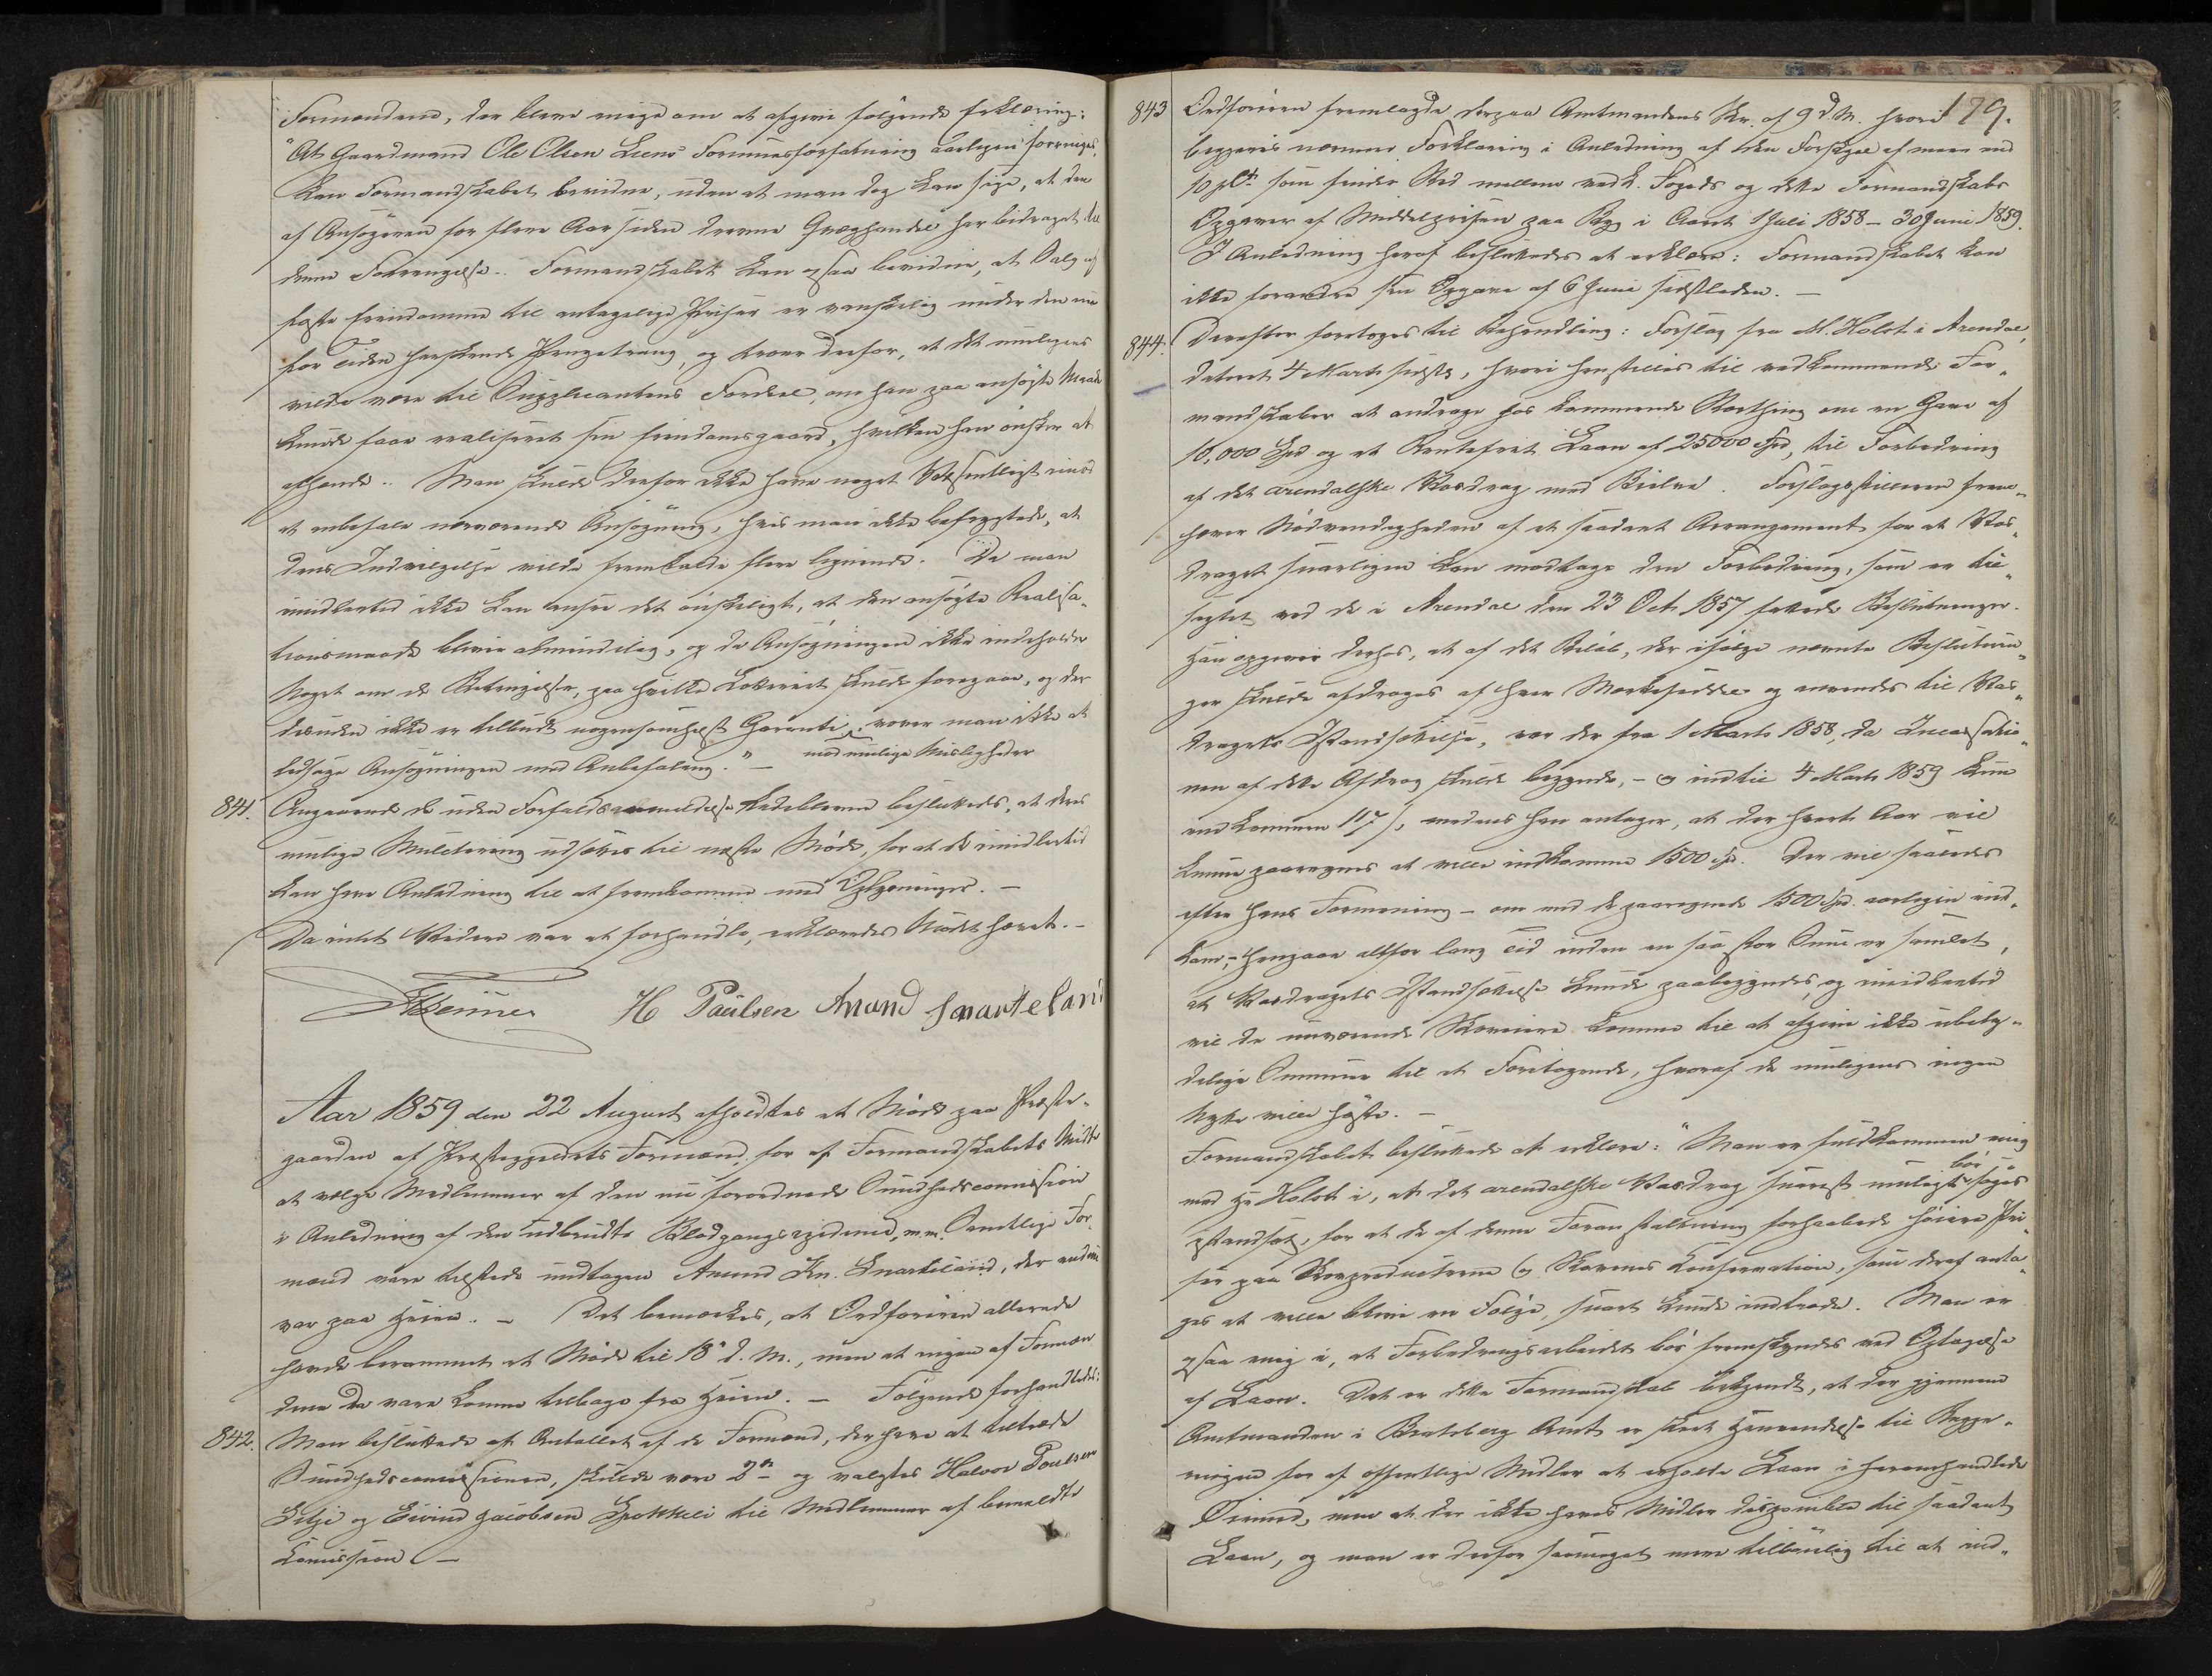 Formændene, der bleve enige om at afgive følgende Erklæring:
"At Gaardmand Ole Olsen Liens Formuesforfatning aarligen forringes,
kan Formandskabet bevidne, uden at man dog kan sige, at den
af Ansøgeren for flere Aar siden drevne Qvæghandel har bidraget til
denne Forringelse. Formandskabet kan ogsaa bevidne, at Salg af
faste Eiendomme til antagelige Priser er vanskelig under den nu
for Tiden herskende Pengetrang, og troer derfor, at det muligens
vilde være til Supplicantens Fordeel, om han paa ansøgte Maade
kunde faae realiseret sin Eiendomsgaard, hvilken han ønsker at
afhænde. Man skulde derfor ikke have noget Væsentligt imod
at anbefale nærværende Ansøgning, hvis man ikke befrygtede, at
dens Indvilgelse vilde fremkalde flere lignende. Da man
imidlertid ikke kan ansee det ønskeligt, at den ansøgte Realisa-
tionsmaade bliver almindelig, og da Ansøgningen ikke indeholder
Noget om de Betingelser, paa hvilke Lotteriet skulde foregaae, og der
desuden ikke er tilbudt nogensomhelst Garanti, vover man ikke at
mod mulige Misligheder
ledsage Ansøgningen med Anbefaling." —
841. Angaaende de uden Forfaldsanmeldelse udeblevne besluttedes, at deres
mulige Mulctering udsættes til næste Møde, for at de imidlertid
kan have Anledning til at fremkomme med Oplysninger. —
Da intet Videre var at forhandle, erklæredes Mødet hævet. —
H Paulsen Anund Smarteland
Aar 1859 den 22 August afholdtes et Møde paa Præste-
gaarden af Præstegjeldets Formænd, for af Formandskabets Midte
at vælge Medlemmer af den nu forordnede Sundhedscommission
i Anledning af den udbrudte Blodgangsepidemi, m.m. Samtlige For-
mænd vare tilstede undtagen Anund Kn. Smarteland, der endnu
var paa Heien. — Det bemærkes, at Ordføreren allerede
havde berammet et Møde til 18de d. M., men at ingen af Formæn-
dene da vare komne tilbage fra Heien. — Følgende forhandledes:
842. Man besluttede at Antallet af de Formænd, der have at tiltræde
Sundhedscommissionen, skulde være 2de og valgtes Halvor Poulsen
Selje og Eivind Jacobsen Spokkeli til Medlemmer af bemeldte
Comission. —
179.
843 Ordføreren fremlagde derpaa Amtmandens Skr. af 9 d. M. hvori
begjæres nærmere Forklaring i Anledning af den Forskjel af mere end
10 pCt. som finder Sted mellem vedk. Fogeds og dette Formandskabs
Opgaver af Middelprisen paa Byg i Aaret 1 Juli 1858 – 30 Juni 1859.
I Anledning heraf besluttedes at erklære: Formandskabet kan
ikke forandre sin Opgave af 6 Juni sidstleden. —
844. Derefter foretoges til Behandling: Forslag fra M. Holst i Arendal,
dateret 4 Marts sidstl., hvori henstilles til vedkommende For-
mandskaber at andrage hos kommende Storthing om en Gave af
10,000 Spd og et Rentefrit Laan af 25000 Spd, til Forbedring
af det arendalske Vasdrag med Bielve. Forslagsstilleren frem-
hæver Nødvendigheden af et saadant Arrangement for at Vas-
draget snarligen kan modtage den Forbedring, som er til-
sigtet ved de i Arendal den 23 Oct 1857 fattede Beslutninger.
Han opgiver derhos, at af det Beløb, der ifølge nævnte Beslutnin-
ger skulde afdrages af hver Mærkeseddel og anvendes til Vas-
dragets Istandsættelse, var der fra 1 Marts 1858, da Incassatio-
nen af dette Afdrag skulde begynde, – og indtil 4 Marts 1859 kun
indkommen 117 , medens han antager, at der hvert Aar vil
kunne paaregnes at ville indkomme 1500 Spd. Der vil saaledes
efter hans Formening – om end de paaregnede 1500 Spd. aarligen ind-
kom, – hengaae altfor lang Tid inden en saa stor Sum er samlet,
at Vasdragets Istandsættelse kunde paabegyndes, og imidlertid
vil de nuværende Skoveiere komme til at afgive ikke ubety-
delige Summer til et Foretagende, hvoraf de muligens ingen
Nytte ville høste. —
Formandskabet besluttede at erklære: "Man er fuldkommen enig
med Hr Holst i, at det arendalske Vasdrag snarest muligt bør søges
istandsat, for at de af denne Foranstaltning forhaabede høiere Pri-
ser paa Skovproducterne og Skovenes Conservation, som deraf anta-
ges at ville blive en Følge, snart kunde indtræde. Man er
ogsaa enig i, at Forbedringsarbeidet bør fremskyndes ved Optagelse
af Laan. Det er dette Formandskab bekjendt, at der gjennem
Amtmanden i Bratsberg Amt er skeet Henvendelse til Regje-
ringen for af offentlige Midler at erholde Laan i heromhandlede
Øiemed, men at der ikke haves Midler disponible til saadant
Laan, og man er derfor saameget mere tilbøielig til at ind-